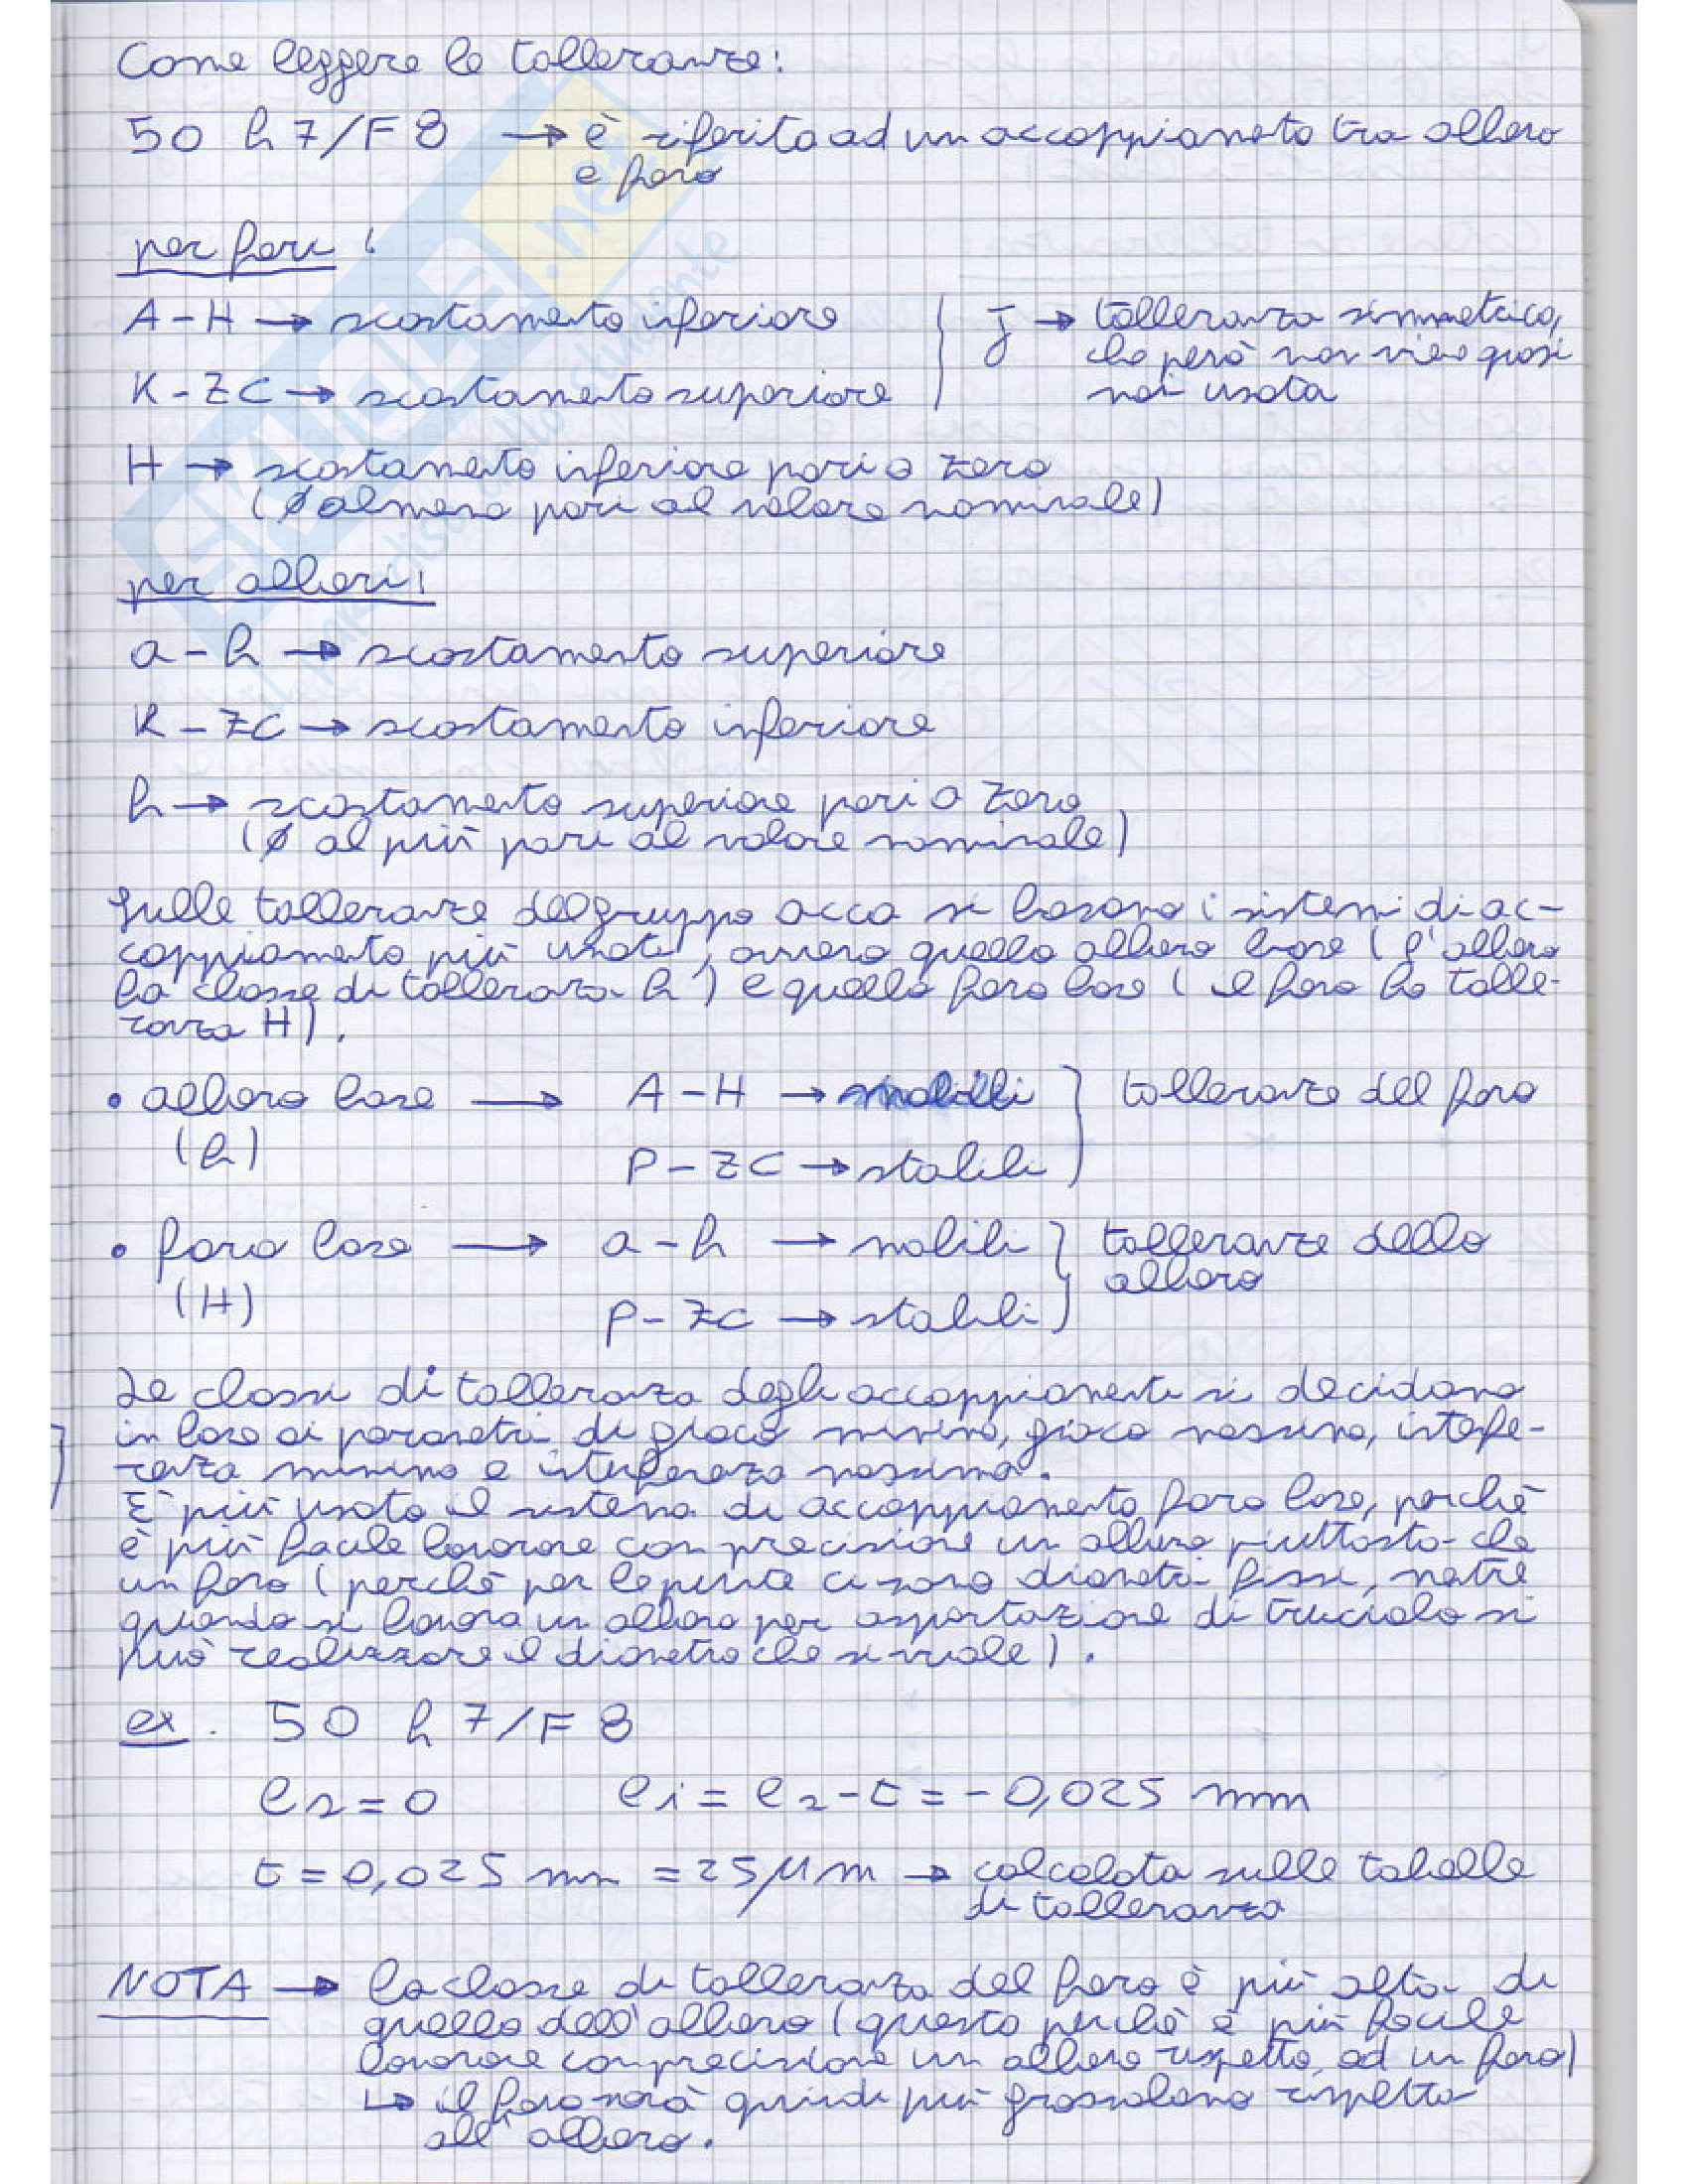 Come leggere le tolleranze:
50 h7/F8 → è riferito ad un accoppiamento tra albero
e foro
per fori:
A-H → scostamento inferiore
J → tolleranza simmetrica,
che però non viene quasi
mai usata
K-ZC → scostamento superiore
H → scostamento inferiore pari a zero
(ø almeno pari al valore nominale)
per alberi:
a-h → scostamento superiore
K-ZC → scostamento inferiore
h → scostamento superiore pari a zero
(ø al più pari al valore nominale)
Sulle tolleranze del gruppo acca si basano i sistemi di ac-
coppiamento più usati, ovvero quello albero base (l'albero
ha classe di tolleranza h) e quello foro base (il foro ha tolle-
ranza H).
• albero base → A-H → mobili } tolleranze del foro
(h) P-ZC → stabili
• foro base → a-h → mobili } tolleranze dello
albero
(H) p-zc → stabili
Le classi di tolleranza degli accoppiamenti si decidono
in base ai parametri di gioco minimo, gioco massimo, interfe-
renza minima e interferenza massima.
È più usato il sistema di accoppiamento foro base, perchè
è più facile lavorare con precisione un albero piuttosto che
un foro (perchè per le punte ci sono diametri fissi, mentre
quando si lavora un albero per asportazione di truciolo si
può realizzare il diametro che si vuole).
ex. 50 h7/F8
es = 0 ei = es - t = -0,025 mm
t = 0,025 mm = 25 μm → calcolata sulle tabelle
di tolleranza
NOTA → la classe di tolleranza del foro è più alta di
quella dell'albero (questo perchè è più facile
lavorare con precisione un albero rispetto ad un foro)
↳ il foro sarà quindi più grossolano rispetto
all'albero.
SKUOLA.net